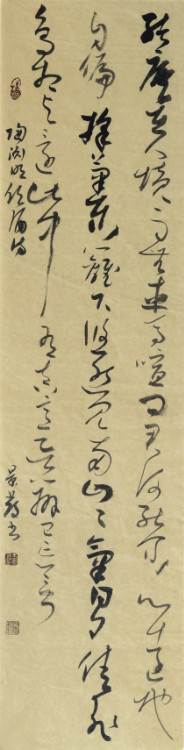 結廬在人境而無車馬喧問君何能爾心遠地
自偏採菊東籬下悠然見南山々氣日夕佳飛
鳥相與還此中有真意欲辨已忘言
陶淵明飲酒詩
景書